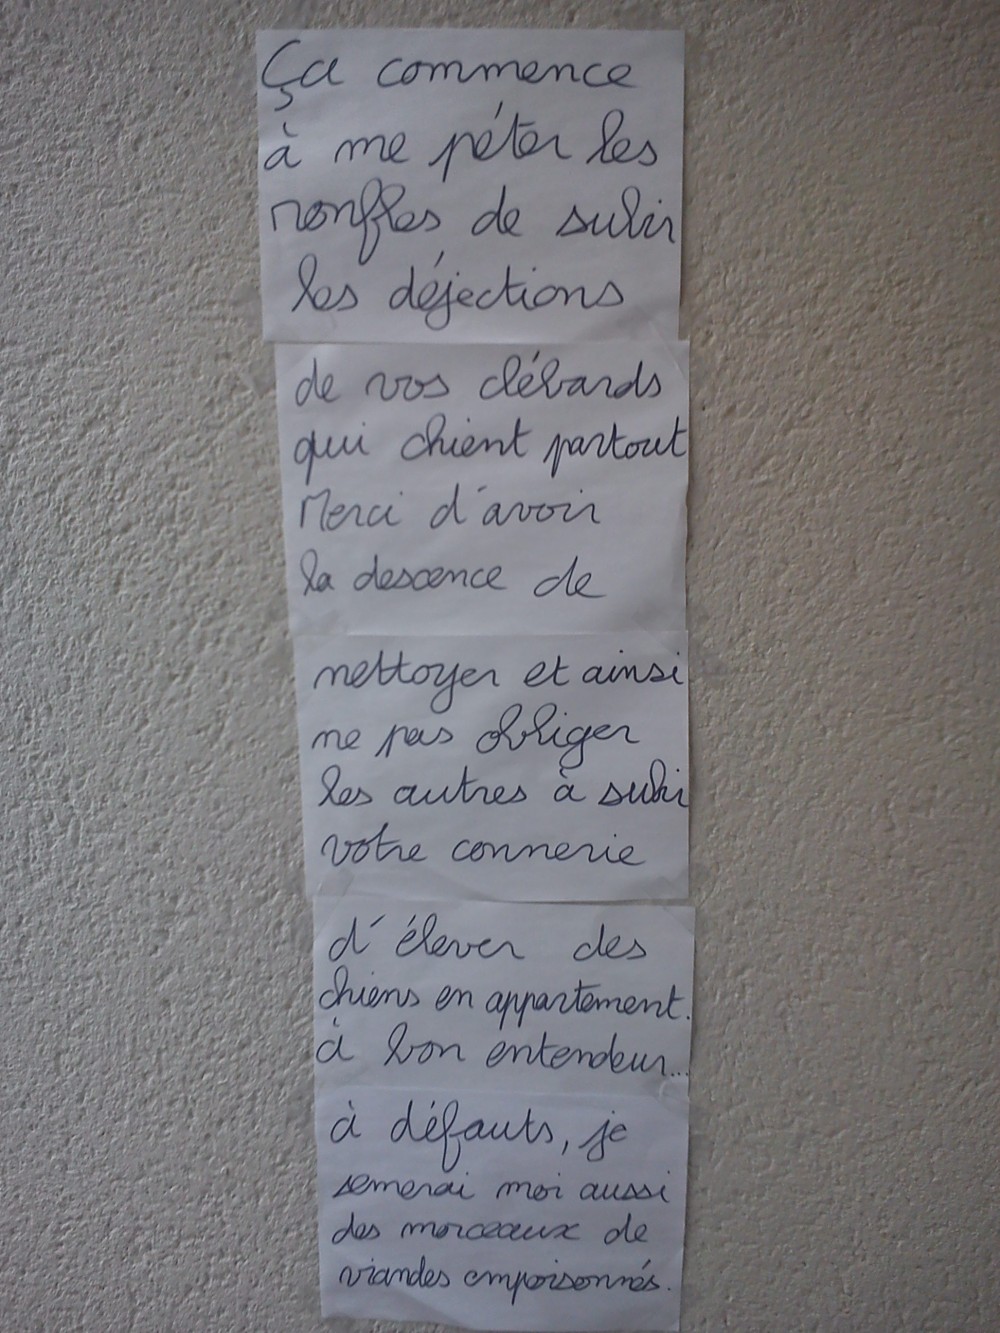 Ça commence
à me péter les
ronfles de subir
les déjections
de vos clébards
qui chient partout
Merci d'avoir
la descence de
nettoyer et ainsi
ne pas obliger
les autres à subir
votre connerie
d'élever des
chiens en appartement.
à bon entendeur...
à défauts, je
semerai moi aussi
des morceaux de
viandes empoisonnés.